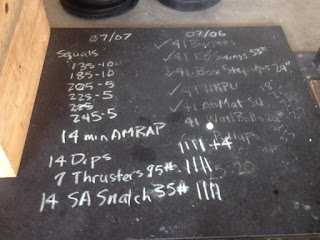 07/07
Squats
135-10
185-10
205-5
225-5
245-5
14 min AMRAP
14 Dips
7 Thrusters 95#
14 SA Snatch 35#
07/06
41 Burpees
41 KB Swings 53#
41 Box Step-ups 24"
41 HRPU
41 AbMat SU
41 Wall Balls